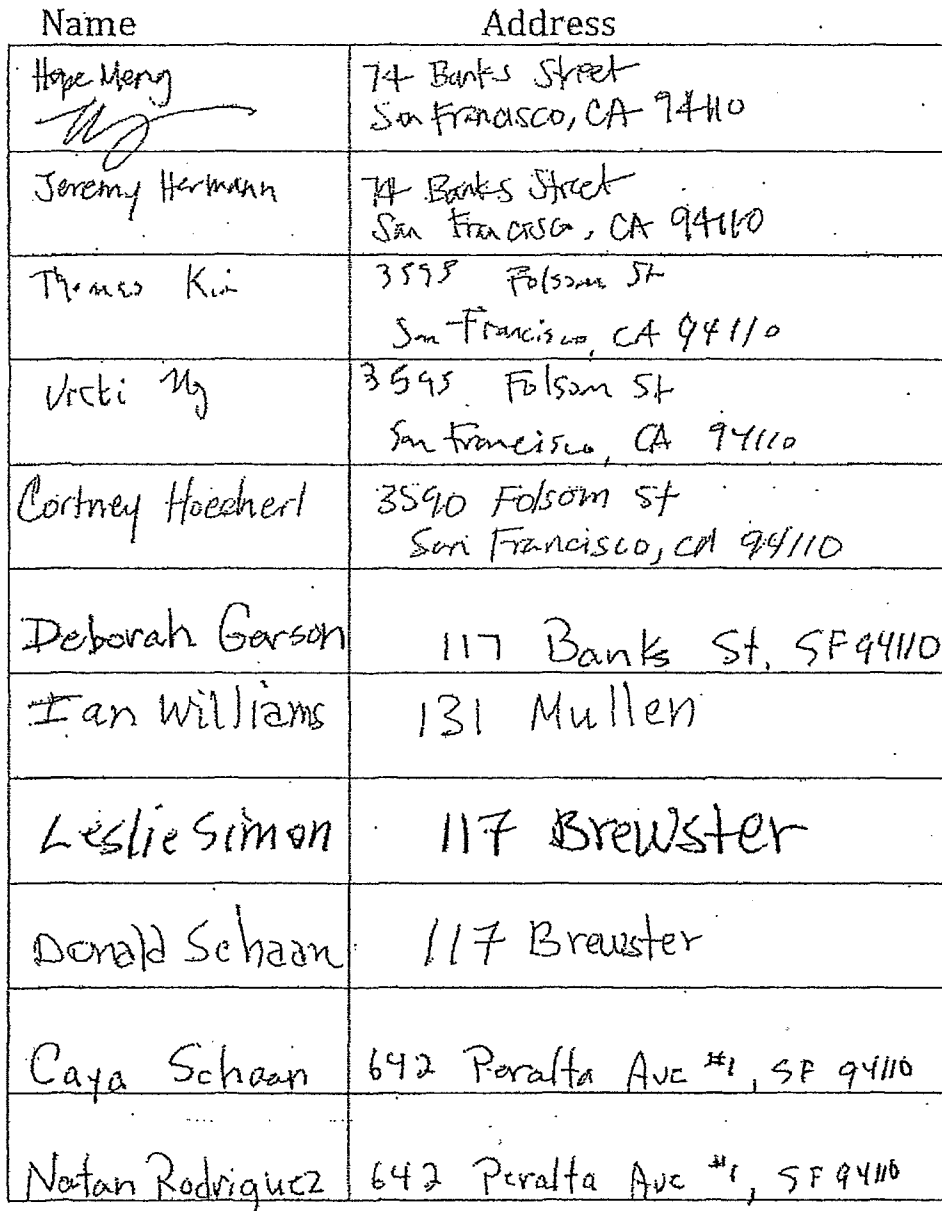 Name Address
Hope Meng 74 Banks Street
San Francisco, CA 94110
Jeremy Hermann 74 Banks Street
San Francisco, CA 94110
Thomas Kim 3595 Folsom St
San Francisco, CA 94110
Vicki Ng 3595 Folsom St
San Francisco, CA 94110
Cortney Hoecherl 3590 Folsom St
San Francisco, CA 94110
Deborah Gerson 117 Banks St, SF 94110
Ian Williams 131 Mullen
Leslie Simon 117 Brewster
Donald Schaan 117 Brewster
Caya Schaan 642 Peralta Ave #1, SF 94110
Natan Rodriguez 642 Peralta Ave #1, SF 94110